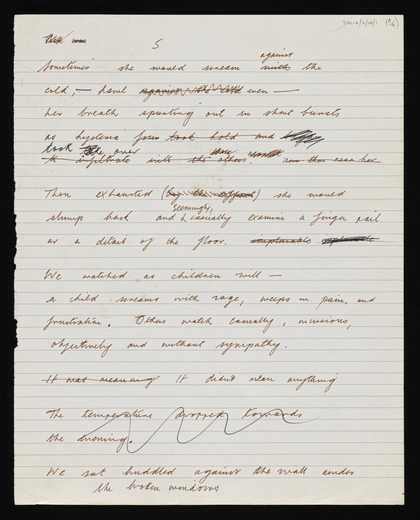 5
against
Sometimes she would scream with the
cold, — hard against the cold even —
her breath spurting out in short bursts
as hysteria took hold and
took over
to infiltrate with the others
Then exhausted (by the effort) she would
seemingly,
slump back and casually examine a finger nail
or a detail of the floor.
We watched as children will —
a child screams with rage, weeps in pain, and
frustration. Others watch casually, incurious,
objectively and without sympathy.
It was meaning It didn't mean anything
The temperature dropped towards
the evening.
We sat huddled against the wall under
the broken windows